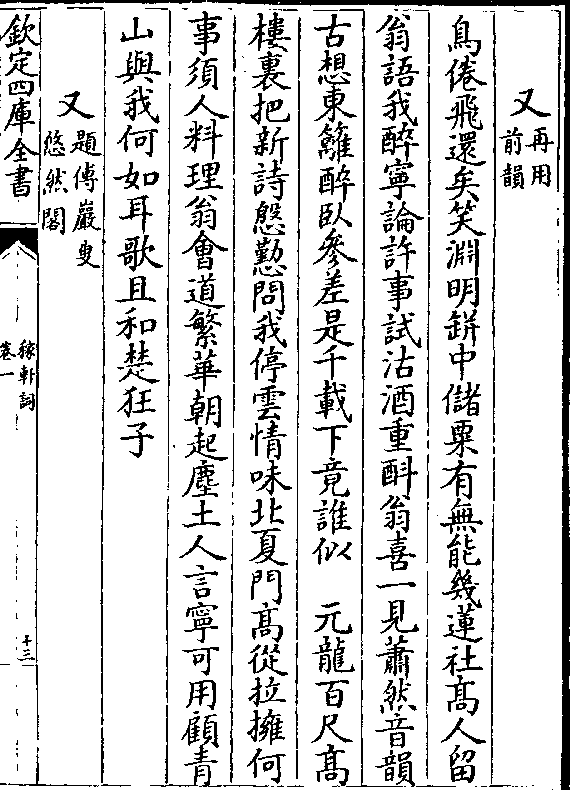 又再用前韻
鳥倦飛還矣笑淵明缾中儲粟有無能幾蓮社高人留
翁語我醉寧論許事試沽酒重斟翁喜一見蕭然音韻
古想東籬醉臥參差是千載下竟誰似 元龍百尺高
樓裏把新詩慇懃問我停雲情味北夏門高從拉攤何
事須人料理翁會道繁華朝起塵土人言寧可用顧青
山與我何如耳歌且和楚狂子
又題傅巖叟悠然閣
欽定四庫全書
稼軒詞
卷一
十三